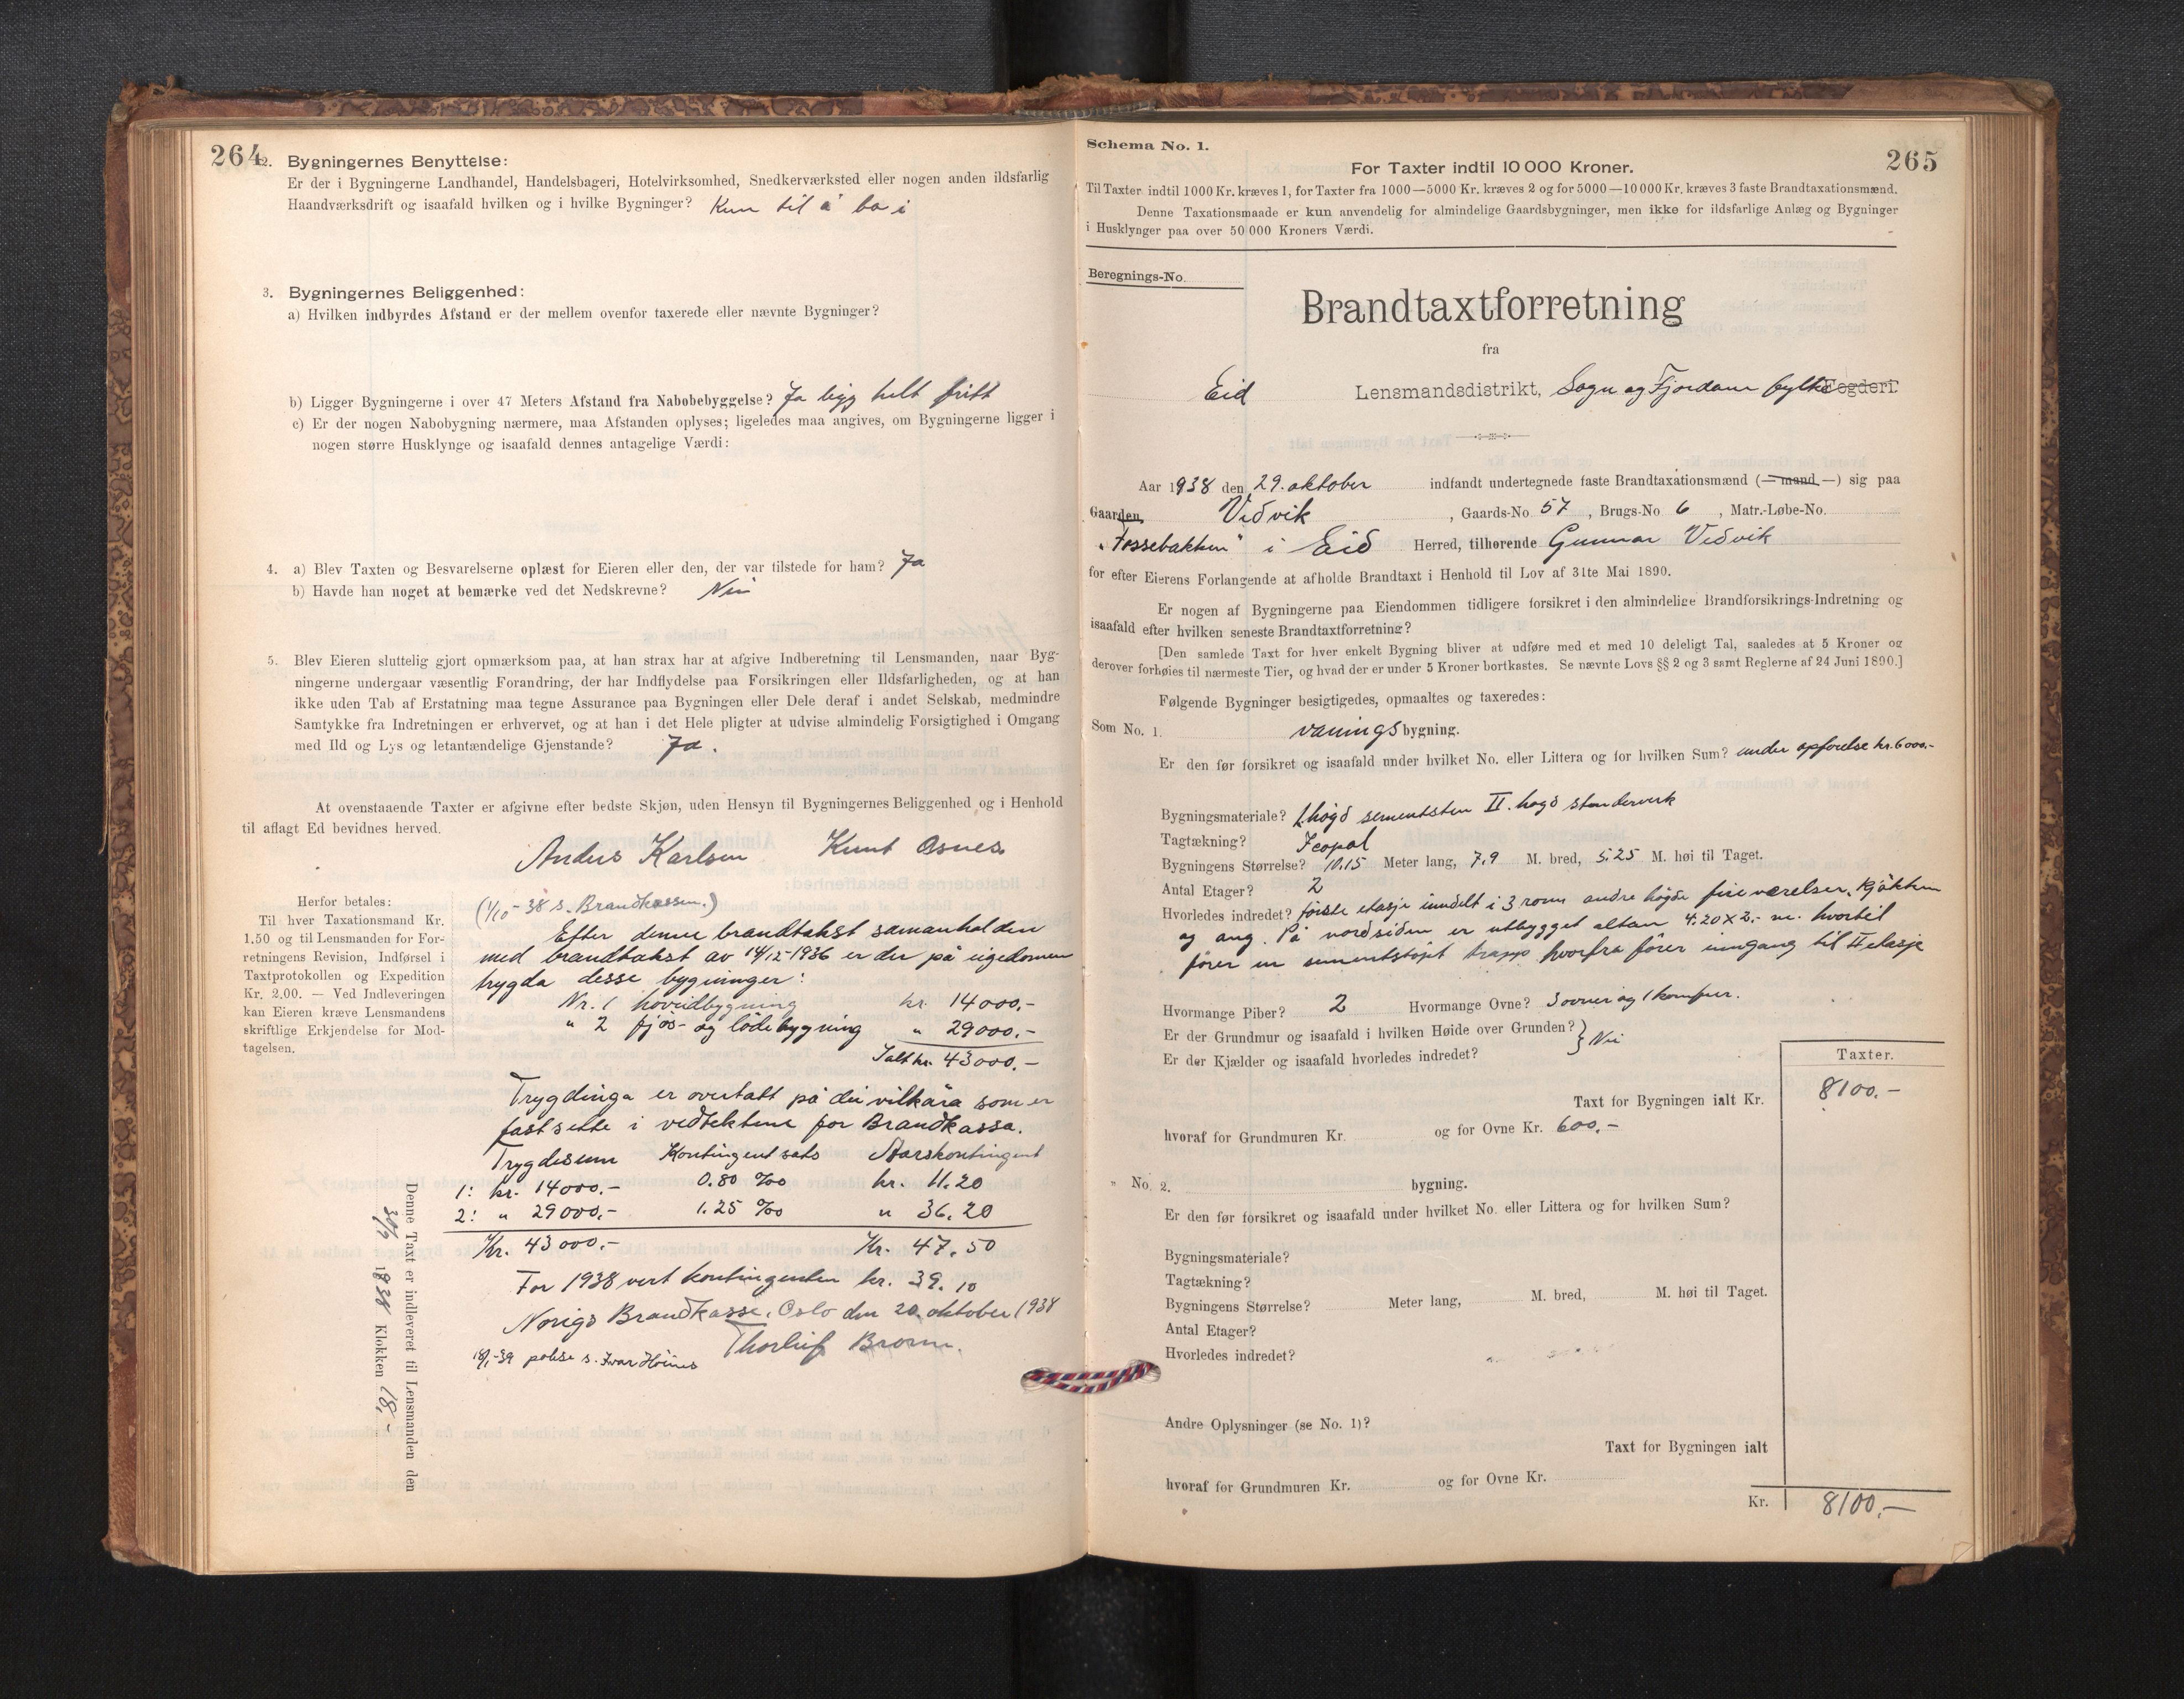 264
2. Bygningernes Benyttelse:
Er der i Bygningerne Landhandel, Handelsbageri, Hotelvirksomhed, Snedkerværksted eller nogen anden ildsfarlig
Haandværksdrift og isaafald hvilken og i hvilke Bygninger? Kun til å bo i
3. Bygningernes Beliggenhed:
a) Hvilken indbyrdes Afstand er der mellem ovenfor taxerede eller nævnte Bygninger?
b) Ligger Bygningerne i over 47 Meters Afstand fra Nabobebyggelse? Ja ligg helt fritt
c) Er der nogen Nabobygning nærmere, maa Afstanden oplyses; ligeledes maa angives, om Bygningerne ligger i
nogen større Husklynge og isaafald dennes antagelige Værdi:
4. a) Blev Taxten og Besvarelserne oplæst for Eieren eller den, der var tilstede for ham? Ja
b) Havde han noget at bemærke ved det Nedskrevne? Nei
5. Blev Eieren sluttelig gjort opmærksom paa, at han strax har at afgive Indberetning til Lensmanden, naar Byg-
ningerne undergaar væsentlig Forandring, der har Indflydelse paa Forsikringen eller Ildsfarligheden, og at han
ikke uden Tab af Erstatning maa tegne Assurance paa Bygningen eller Dele deraf i andet Selskab, medmindre
Samtykke fra Indretningen er erhvervet, og at han i det Hele pligter at udvise almindelig Forsigtighed i Omgang
med Ild og Lys og letantændelige Gjenstande? Ja.
At ovenstaaende Taxter er afgivne efter bedste Skjøn, uden Hensyn til Bygningernes Beliggenhed og i Henhold
til aflagt Ed bevidnes herved.
Anders Karlsen Knut Osnes
Herfor betales:
Til hver Taxationsmand Kr.
1.50 og til Lensmanden for For-
retningens Revision, Indførsel i
Taxtprotokollen og Expedition
Kr. 2.00. — Ved Indleveringen
kan Eieren kræve Lensmandens
skriftlige Erkjendelse for Mod-
tagelsen.
(1/10-38 s. Brandkassen.)
Efter denne brandtakst samanhalden
med brandtakst av 14/12-1936 er der på eigedomen
trygda desse bygninger:
Nr. 1 hovudbygning kr. 14000,-
" 2 fjøs- og lødebygning " 29000,-
Ialt kr. 43000,-
Trygdinga er overtatt på dei vilkåra som er
fastsette i vedtektene for Brandkassa.
Trygdesum Kontingentsats Aarskontingent
1: kr. 14000.- 0.80 ‰ kr. 11.20
2: " 29000,- 1.25 ‰ " 36.20
Kr. 43000.- Kr. 47.50
For 1938 vert kontingenten kr. 39.10
Norigs Brandkasse, Oslo den 20. oktober 1938
Thorleif
-39 polise s. Ivar
Denne Taxt er indleveret til Lensmanden den
30/9 1938 Klokken 18,-
Schema No. 1.
265
For Taxter indtil 10 000 Kroner.
Til Taxter indtil 1000 Kr. kræves 1, for Taxter fra 1000—5000 Kr. kræves 2 og for 5000—10 000 Kr. kræves 3 faste Brandtaxationsmænd.
Denne Taxationsmaade er kun anvendelig for almindelige Gaardsbygninger, men ikke for ildsfarlige Anlæg og Bygninger
i Husklynger paa over 50 000 Kroners Værdi.
Beregnings-No.
Brandtaxtforretning
fra
Eid Lensmandsdistrikt, Sogn og Fjordane fylke Fogderi.
Aar 1938 den 29. oktober indfandt undertegnede faste Brandtaxationsmænd (— mand —) sig paa
Gaarden Vedvik, Gaards-No 57, Brugs-No 6, Matr.-Løbe-No.
"Fossebakken" i Eid Herred, tilhørende Gunnar Vedvik
for efter Eierens Forlangende at afholde Brandtaxt i Henhold til Lov af 31te Mai 1890.
Er nogen af Bygningerne paa Eiendommen tidligere forsikret i den almindelige Brandforsikrings-Indretning og
isaafald efter hvilken seneste Brandtaxtforretning?
[Den samlede Taxt for hver enkelt Bygning bliver at udføre med et med 10 deleligt Tal, saaledes at 5 Kroner og
derover forhøies til nærmeste Tier, og hvad der er under 5 Kroner bortkastes. Se nævnte Lovs §§ 2 og 3 samt Reglerne af 24 Juni 1890.]
Følgende Bygninger besigtigedes, opmaaltes og taxeredes:
Som No. 1. vaningsbygning.
Er den før forsikret og isaafald under hvilket No. eller Littera og for hvilken Sum? under opførelse kr. 6000,-
Bygningsmateriale? I. høgd sementsten II. høgd stenderverk
Tagtækning? Icopal
Bygningens Størrelse? 10.15 Meter lang, 7,9 M. bred, 5.25 M. høi til Taget.
Antal Etager? 2
Hvorledes indredet? første etasje inndelt i 3 rom, andre høgde fire værelser, kjøkken
og gang. På nordsiden er utbygget altan 4.20 x 2,- m. hvortil
fører en sementstøpt trapp hvorfra fører inngang til II etasje
Hvormange Piber? 2 Hvormange Ovne? 3 ovner og 1 komfur.
Er der Grundmur og isaafald i hvilken Høide over Grunden? } Nei
Er der Kjælder og isaafald hvorledes indredet?
Taxter.
Taxt for Bygningen ialt Kr. 8100.-
hvoraf for Grundmuren Kr. og for Ovne Kr. 600,-
" No. 2. bygning.
Er den før forsikret og isaafald under hvilket No. eller Littera og for hvilken Sum?
Bygningsmateriale?
Tagtækning?
Bygningens Størrelse? Meter lang, M. bred, M. høi til Taget.
Antal Etager?
Hvorledes indredet?
Andre Oplysninger (se No. 1)?
Taxt for Bygningen ialt
hvoraf for Grundmuren Kr. og for Ovne Kr.
Kr. 8100,-